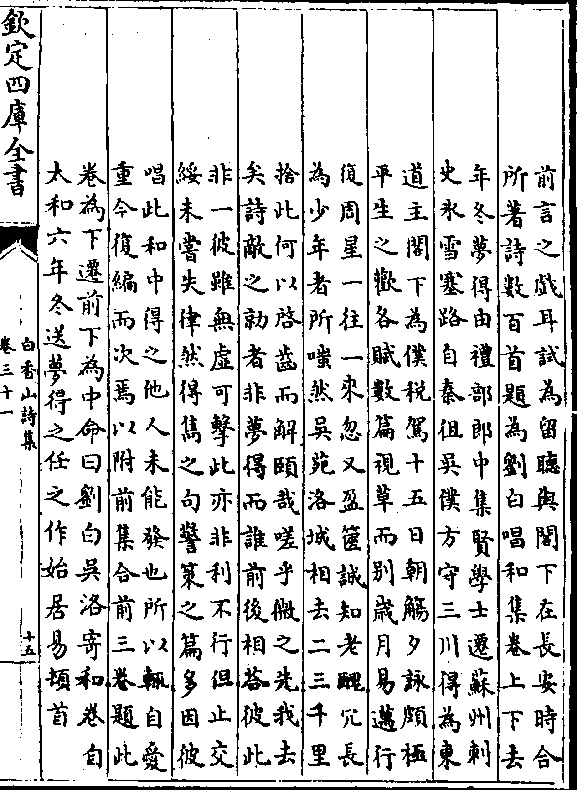 前言之戲耳試為留聽與閣下在長安時合
所著詩數百首題為劉白唱和集卷上下去
年冬夢得由禮部郎中集賢學士遷蘇州刺
史氷雪塞路自秦徂吳僕方守三川得為東
道主閣下為僕稅駕十五日朝觴夕詠頗極
平生之歡各賦數篇視草而別歲月易邁行
復周星一往一來忽又盈篋誠知老醜冗長
為少年者所嗤然吳苑洛城相去二三千里
捨此何以啓齒而解頤哉嗟乎微之先我去
矣詩敵之勍者非夢得而誰前後相荅彼此
非一彼雖無虛可擊此亦非利不行但止交
綏未嘗失律然得雋之句警策之篇多因彼
唱此和中得之他人未能發也所以輒自愛
重今復編而次焉以附前集合前三卷題此
卷為下遷前下為中命曰劉白吳洛寄和卷自
太和六年冬送夢得之任之作始居易頓首
欽定四庫全書
白香山詩集
卷三十一
十五